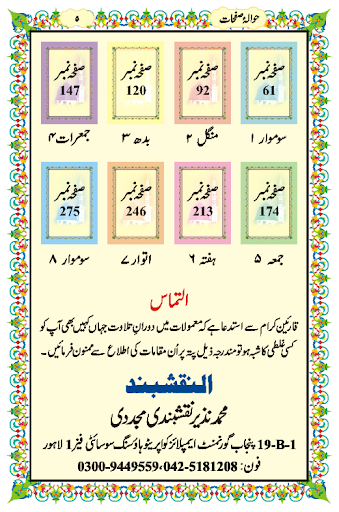 حوالۂ صفحات
۵
صفحہ نمبر 61 صفحہ نمبر 92 صفحہ نمبر 120 صفحہ نمبر 147
سوموار ۱ منگل ۲ بدھ ۳ جمعرات ۴
صفحہ نمبر 174 صفحہ نمبر 213 صفحہ نمبر 246 صفحہ نمبر 275
جمعہ ۵ ہفتہ ۶ اتوار ۷ سوموار ۸
التماس
قارئین کرام سے استدعا ہے کہ معمولات میں دورانِ تلاوت جہاں کہیں بھی آپ کو
کسی غلطی کا شبہ ہو تو مندرجہ ذیل پتہ پر اُن مقامات کی اطلاع سے ممنون فرمائیں۔
النقشبند
محمد نذیر نقشبندی مجددی
19-B-1 پنجاب گورنمنٹ ایمپلائز کواپریٹو ہاؤسنگ سوسائٹی فیز 1 لاہور
فون: 042-5181208، 0300-9449559